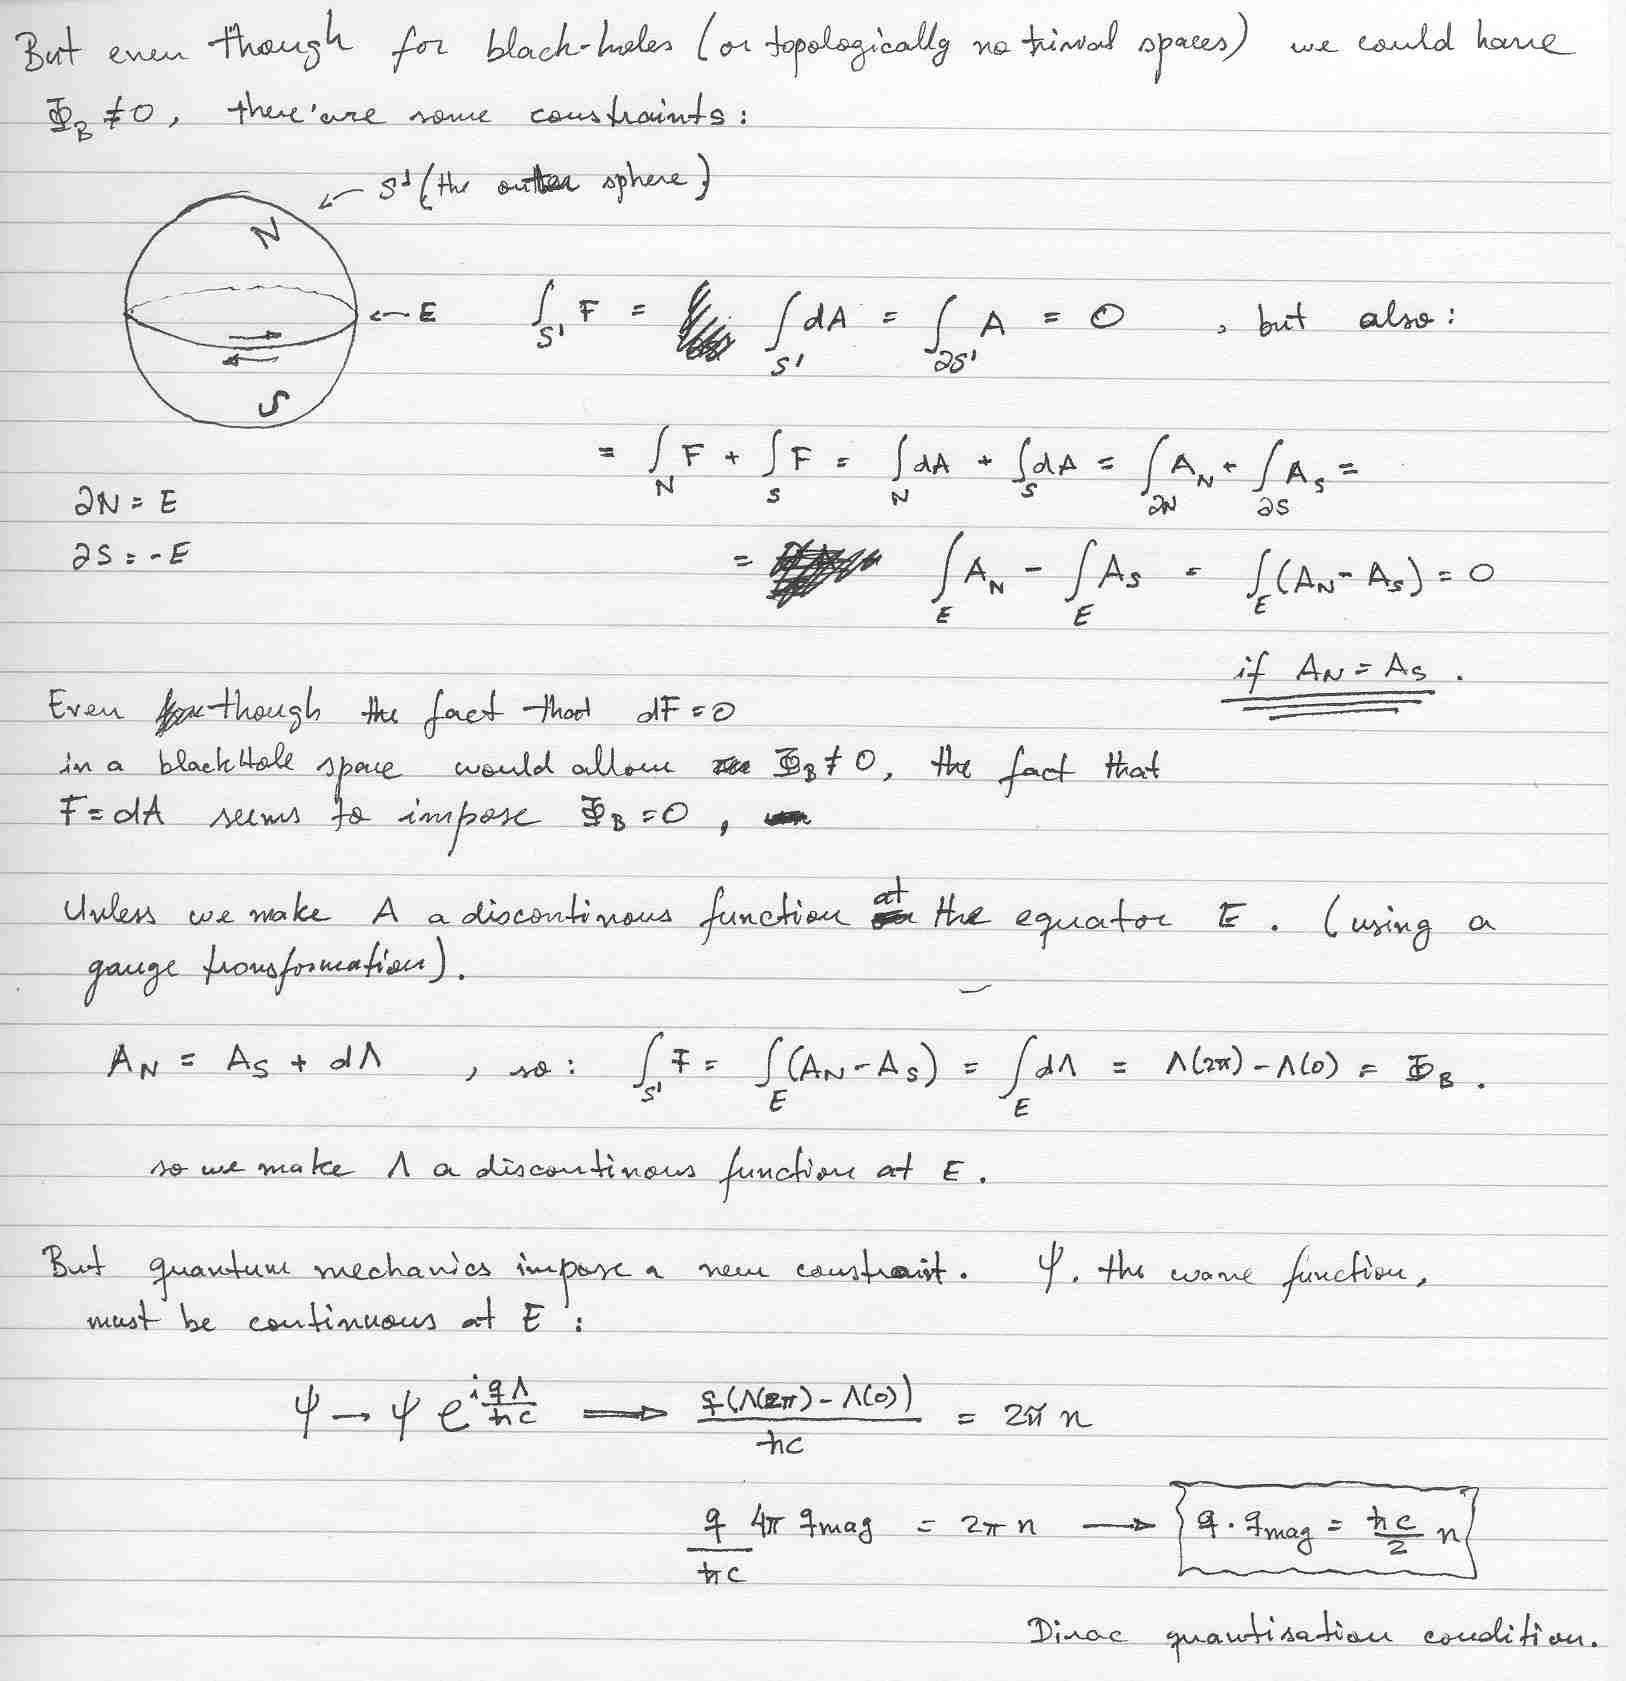 But even though for black-holes (or topologically no trivial spaces) we could have
Φ_B ≠ 0, there are some constraints:
← S' (the outer sphere)
N
← E
S
∫_{S'} F = ∫_{S'} dA = ∫_{∂S'} A = 0 , but also:
= ∫_N F + ∫_S F = ∫_N dA + ∫_S dA = ∫_{∂N} A_N + ∫_{∂S} A_S =
∂N = E
∂S = -E
= ∫_E A_N - ∫_E A_S = ∫_E (A_N - A_S) = 0
if A_N = A_S .
Even though the fact that dF = 0
in a black Hole space would allow Φ_B ≠ 0, the fact that
F = dA seems to impose Φ_B = 0 ,
Unless we make A a discontinous function at the equator E . (using a
gauge transformation).
A_N = A_S + dΛ , so: ∫_{S'} F = ∫_E (A_N - A_S) = ∫_E dΛ = Λ(2π) - Λ(0) = Φ_B .
so we make Λ a discontinous function at E.
But quantum mechanics impose a new constraint. Ψ, the wave function,
must be continuous at E :
Ψ → Ψ e^{i qΛ/ħc} ⟹ q(Λ(2π) - Λ(0))/ħc = 2π n
q/ħc 4π q_mag = 2π n → q · q_mag = ħc/2 n
Dirac quantisation condition.